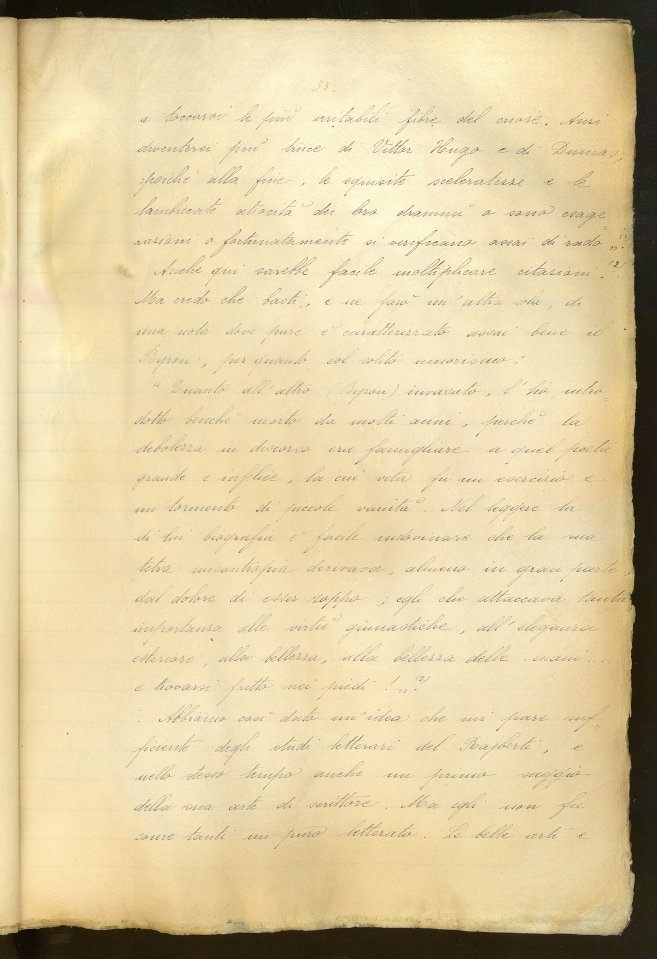 55.
" toccarvi le più irritabili fibre del cuore. Anzi
diventerei più truce di Vittor Hugo e di Dumas;
poichè alla fine, le squisite scelleratezze e le
lambiccate atrocità dei loro drammi o sono esage
razioni o fortunatamente si verificano assai di rado "
Anche qui sarebbe facile moltiplicare citazioni.
Ma credo che basti, e ne farò un'altra sola, di
una nota dove pure è caratterizzato assai bene il
Byron, per quanto col solito umorismo:
" Quanto all'altro (Byron) invasato, l'ho intro-
dotto benchè morto da molti anni, perchè la
debolezza in discorso era famigliare a quel poeta
grande e infelice, la cui vita fu un esercizio e
un tormento di piccole vanità. Nel leggere la
di lui biografia è facile indovinare che la sua
tetra misantropia derivava, almeno in gran parte,
dal dolore di esser zoppo; egli che attaccava tanta
importanza alle virtù ginnastiche, all'eleganza
esteriore, alla bellezza, alla bellezza delle mani...
e trovarsi fritto nei piedi! " 2)
Abbiamo così dato un'idea che mi pare suf-
ficiente degli studi letterari del Rajberti, e
nello stesso tempo anche un primo saggio
della sua arte di scrittore. Ma egli non fu
come tanti un puro letterato. Le belle arti e